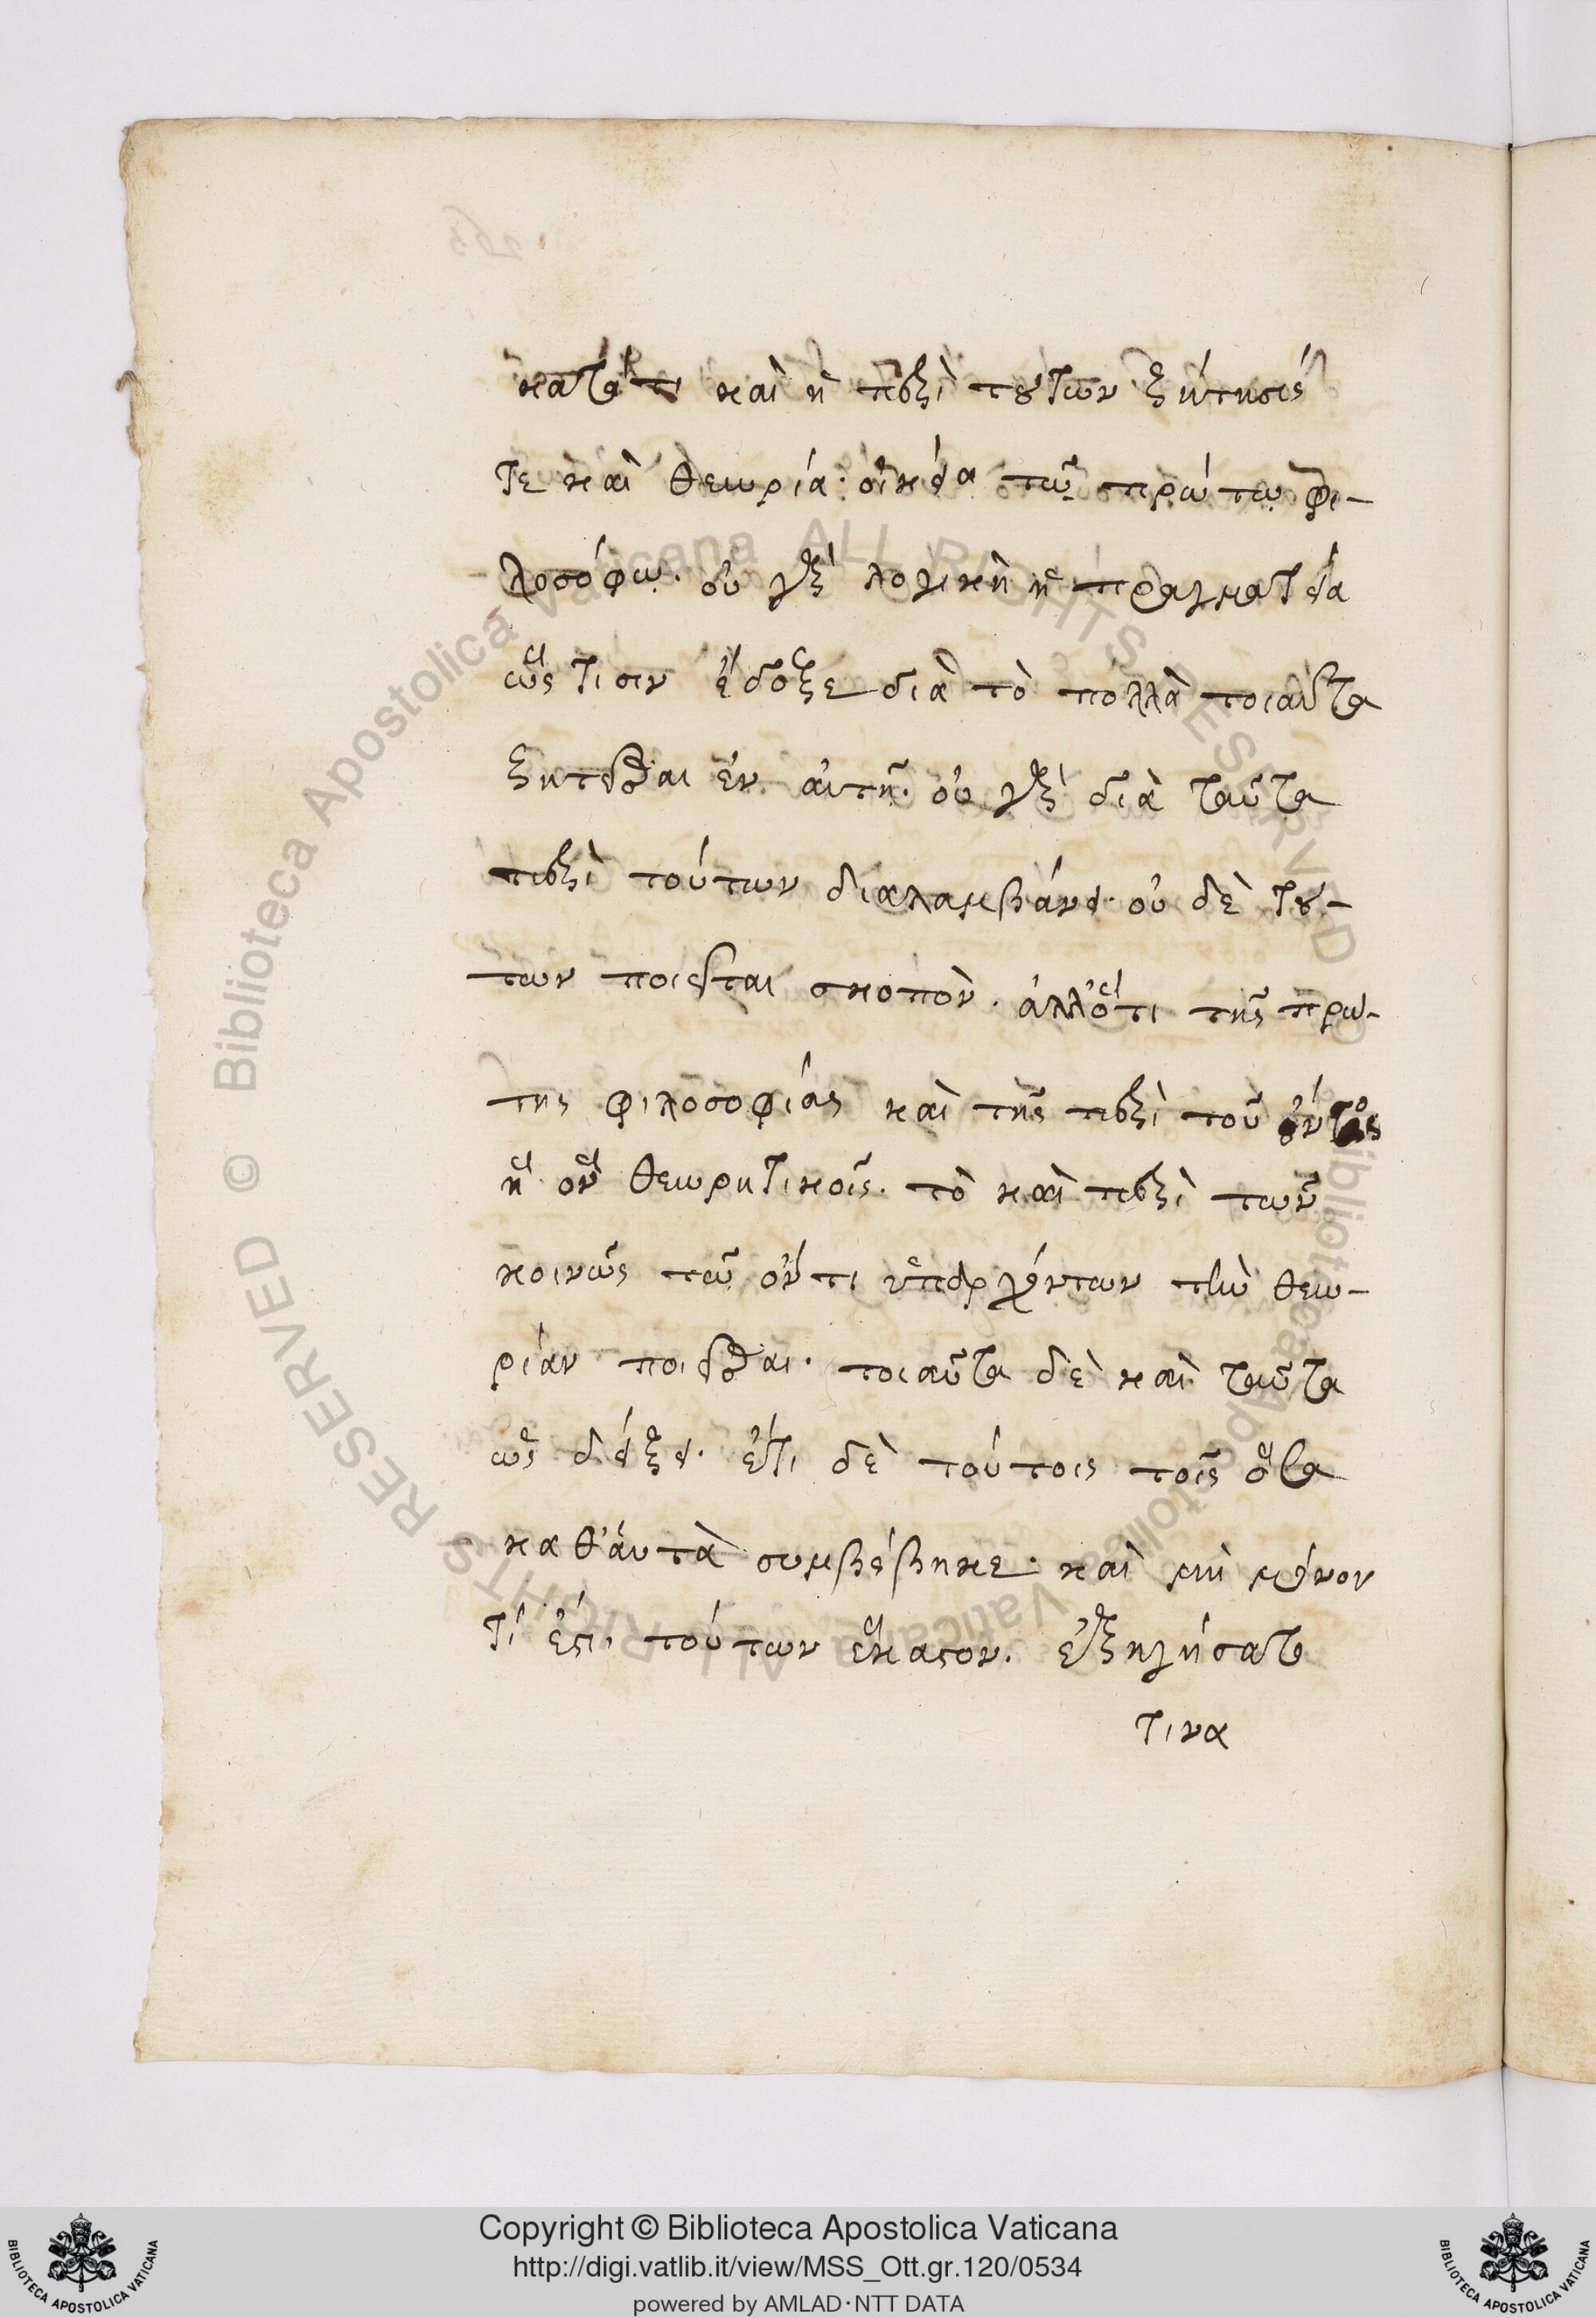 κατά τι καὶ ἡ περὶ τούτων ζήτησίς
τε καὶ θεωρία· οἰκεία τῶ πρώτω φι-
λοσόφω. οὐ γὰρ λογικὴ ἡ πραγματεία
ὥς τισιν ἔδοξε διὰ τὸ πολλὰ τοιαῦτα
ζητεῖσθαι ἐν αὐτῆ. οὐ γὰρ διὰ ταῦτα
περὶ τούτων διαλαμβάνει· οὐδὲ τού-
των ποιεῖται σκοπὸν. ἀλλ' ὅτι τῆς πρώ-
της φιλοσοφίας καὶ τῆς περὶ τοῦ ὄντος
ἧ ὂν θεωρητικοῖς. τὸ καὶ περὶ τῶν
κοινῶς τῶ ὄντι ὑπαρχόντων τὴν θεω-
ρίαν ποιεῖσθαι. τοιαῦτα δὲ καὶ ταῦτα
ὡς δείξει. ἔτι δὲ τούτοις τοῖς ὅσα
καθ' αὑτὰ συμβέβηκε. καὶ μὴ μόνον
τί ἐστι τούτων ἕκαστον. ἐξηγήσατο
τινα
Copyright © Biblioteca Apostolica Vaticana
http://digi.vatlib.it/view/MSS_Ott.gr.120/0534
powered by AMLAD·NTT DATA
BIBLIOTECA APOSTOLICA VATICANA
BIBLIOTECA APOSTOLICA VATICANA
© Biblioteca Apostolica Vaticana ALL RIGHTS RESERVED
© Biblioteca Apostolica Vaticana ALL RIGHTS RESERVED